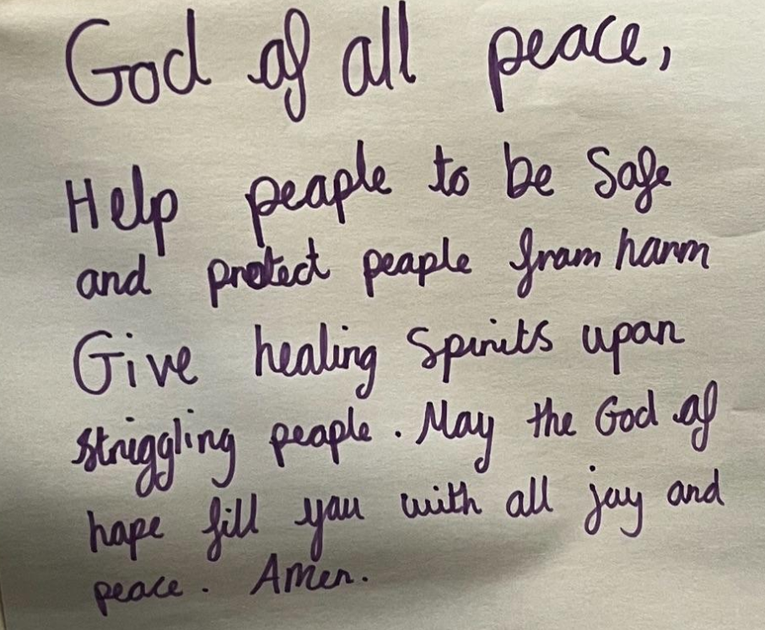 God of all peace,
Help people to be safe
and protect people from harm
Give healing spirits upon
struggling people. May the God of
hope fill you with all joy and
peace. Amen.